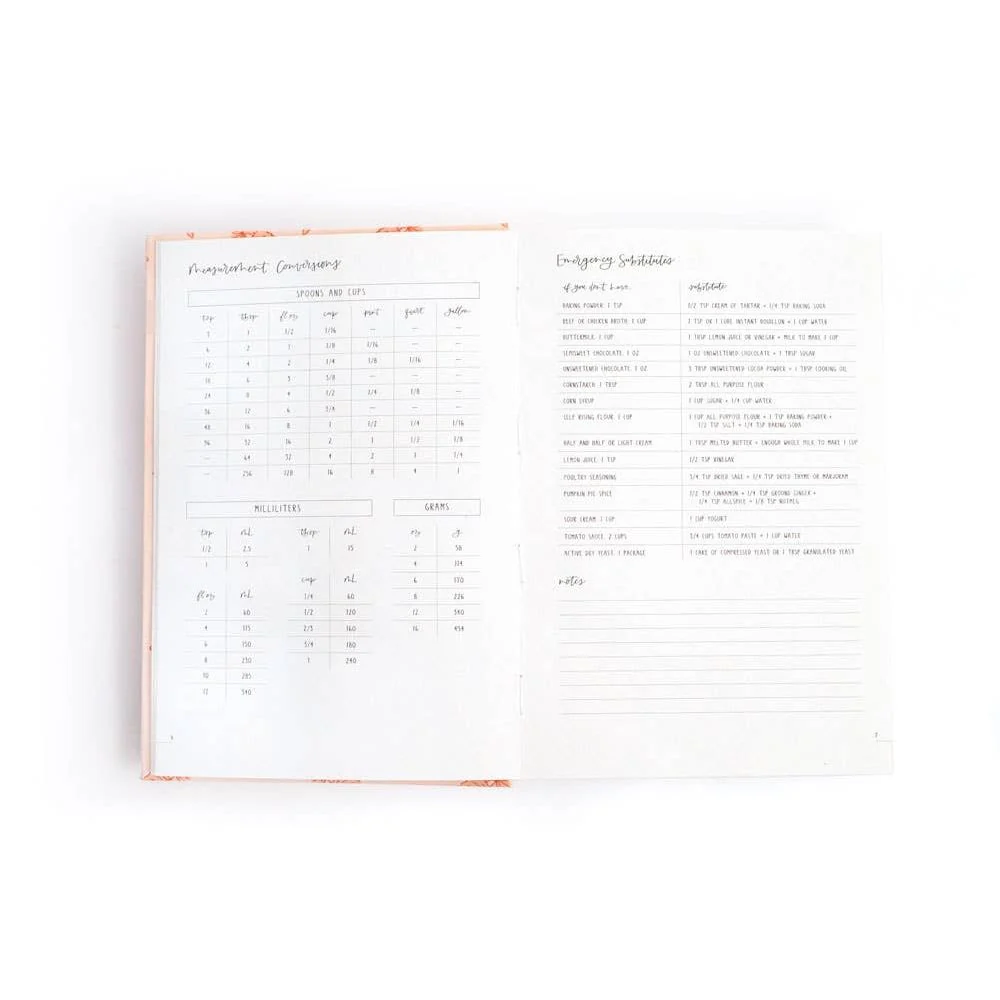 Measurement Conversions
SPOONS AND CUPS
tsp tbsp fl oz cup pint quart gallon
3 1 1/2 1/16 — — —
6 2 1 1/8 1/16 — —
12 4 2 1/4 1/8 1/16 —
18 6 3 3/8 — — —
24 8 4 1/2 1/4 1/8 —
36 12 6 3/4 — — —
48 16 8 1 1/2 1/4 1/16
96 32 16 2 1 1/2 1/8
— 64 32 4 2 1 1/4
— 256 128 16 8 4 1
MILLILITERS
tsp mL
1/2 2.5
1 5
fl oz mL
2 60
4 115
6 150
8 230
10 285
12 340
tbsp mL
1 15
cup mL
1/4 60
1/2 120
2/3 160
3/4 180
1 240
GRAMS
oz g
2 58
4 114
6 170
8 226
12 340
16 454
Emergency Substitutes
if you don't have: substitute:
BAKING POWDER, 1 TSP 1/2 TSP CREAM OF TARTAR + 1/4 TSP BAKING SODA
BEEF OR CHICKEN BROTH, 1 CUP 1 TSP OR 1 CUBE INSTANT BOUILLON + 1 CUP WATER
BUTTERMILK, 1 CUP 1 TBSP LEMON JUICE OR VINEGAR + MILK TO MAKE 1 CUP
SEMISWEET CHOCOLATE, 1 OZ 1 OZ UNSWEETENED CHOCOLATE + 1 TBSP SUGAR
UNSWEETENED CHOCOLATE, 1 OZ 3 TBSP UNSWEETENED COCOA POWDER + 1 TBSP COOKING OIL
CORNSTARCH, 1 TBSP 2 TBSP ALL PURPOSE FLOUR
CORN SYRUP 1 CUP SUGAR + 1/4 CUP WATER
SELF RISING FLOUR, 1 CUP 1 CUP ALL PURPOSE FLOUR + 1 TSP BAKING POWDER +
1/2 TSP SALT + 1/4 TSP BAKING SODA
HALF AND HALF OR LIGHT CREAM 1 TBSP MELTED BUTTER + ENOUGH WHOLE MILK TO MAKE 1 CUP
LEMON JUICE, 1 TSP 1/2 TSP VINEGAR
POULTRY SEASONING 3/4 TSP DRIED SAGE + 1/4 TSP DRIED THYME OR MARJORAM
PUMPKIN PIE SPICE 1/2 TSP CINNAMON + 1/4 TSP GROUND GINGER +
1/4 TSP ALLSPICE + 1/8 TSP NUTMEG
SOUR CREAM, 1 CUP 1 CUP YOGURT
TOMATO SAUCE, 2 CUPS 3/4 CUPS TOMATO PASTE + 1 CUP WATER
ACTIVE DRY YEAST, 1 PACKAGE 1 CAKE OF COMPRESSED YEAST OR 1 TBSP GRANULATED YEAST
notes
2